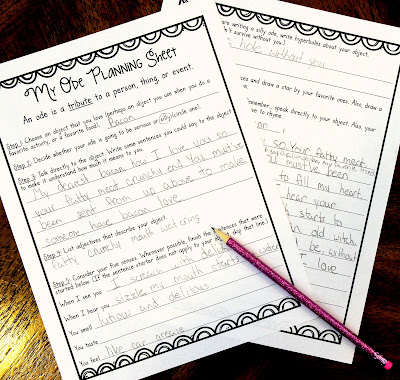 My Ode Planning Sheet
An ode is a tribute to a person, thing, or event.
Step 1: Choose an object that you love (perhaps an object you use when you do a
favorite activity, or a favorite food). Bacon
Step 2: Decide whether your ode is going to be serious or silly (circle one).
Step 3: Talk directly to the object. Write some sentences you could say to the object
to make it understand how much it means to you.
My dearly bacon how I love you so
your fatty meat crunchy end You mut've
been sent from up above to make
someone have bacon love.
Step 4: List adjectives that describe your object.
fatty crunchy mouth watering
Step 5: Consider your five senses. Whenever possible, finish the sentences that were
started below. (If the sentence starter does not apply to your skip that line.)
When I see you I screach with
When I hear you sizzle my mouth starts
You smell
You taste
You feel like car grease
are writing a silly ode, write hyperboles about your object.
't survive without you.)
hole without you
ces and draw a star by your favorite ones. Also, draw a
emember, speak directly to your object. Also,
ve to rhyme.
so Your fatty meat
't've been
to fill my heart
hear your
starts to
an old witch,
be without
I love